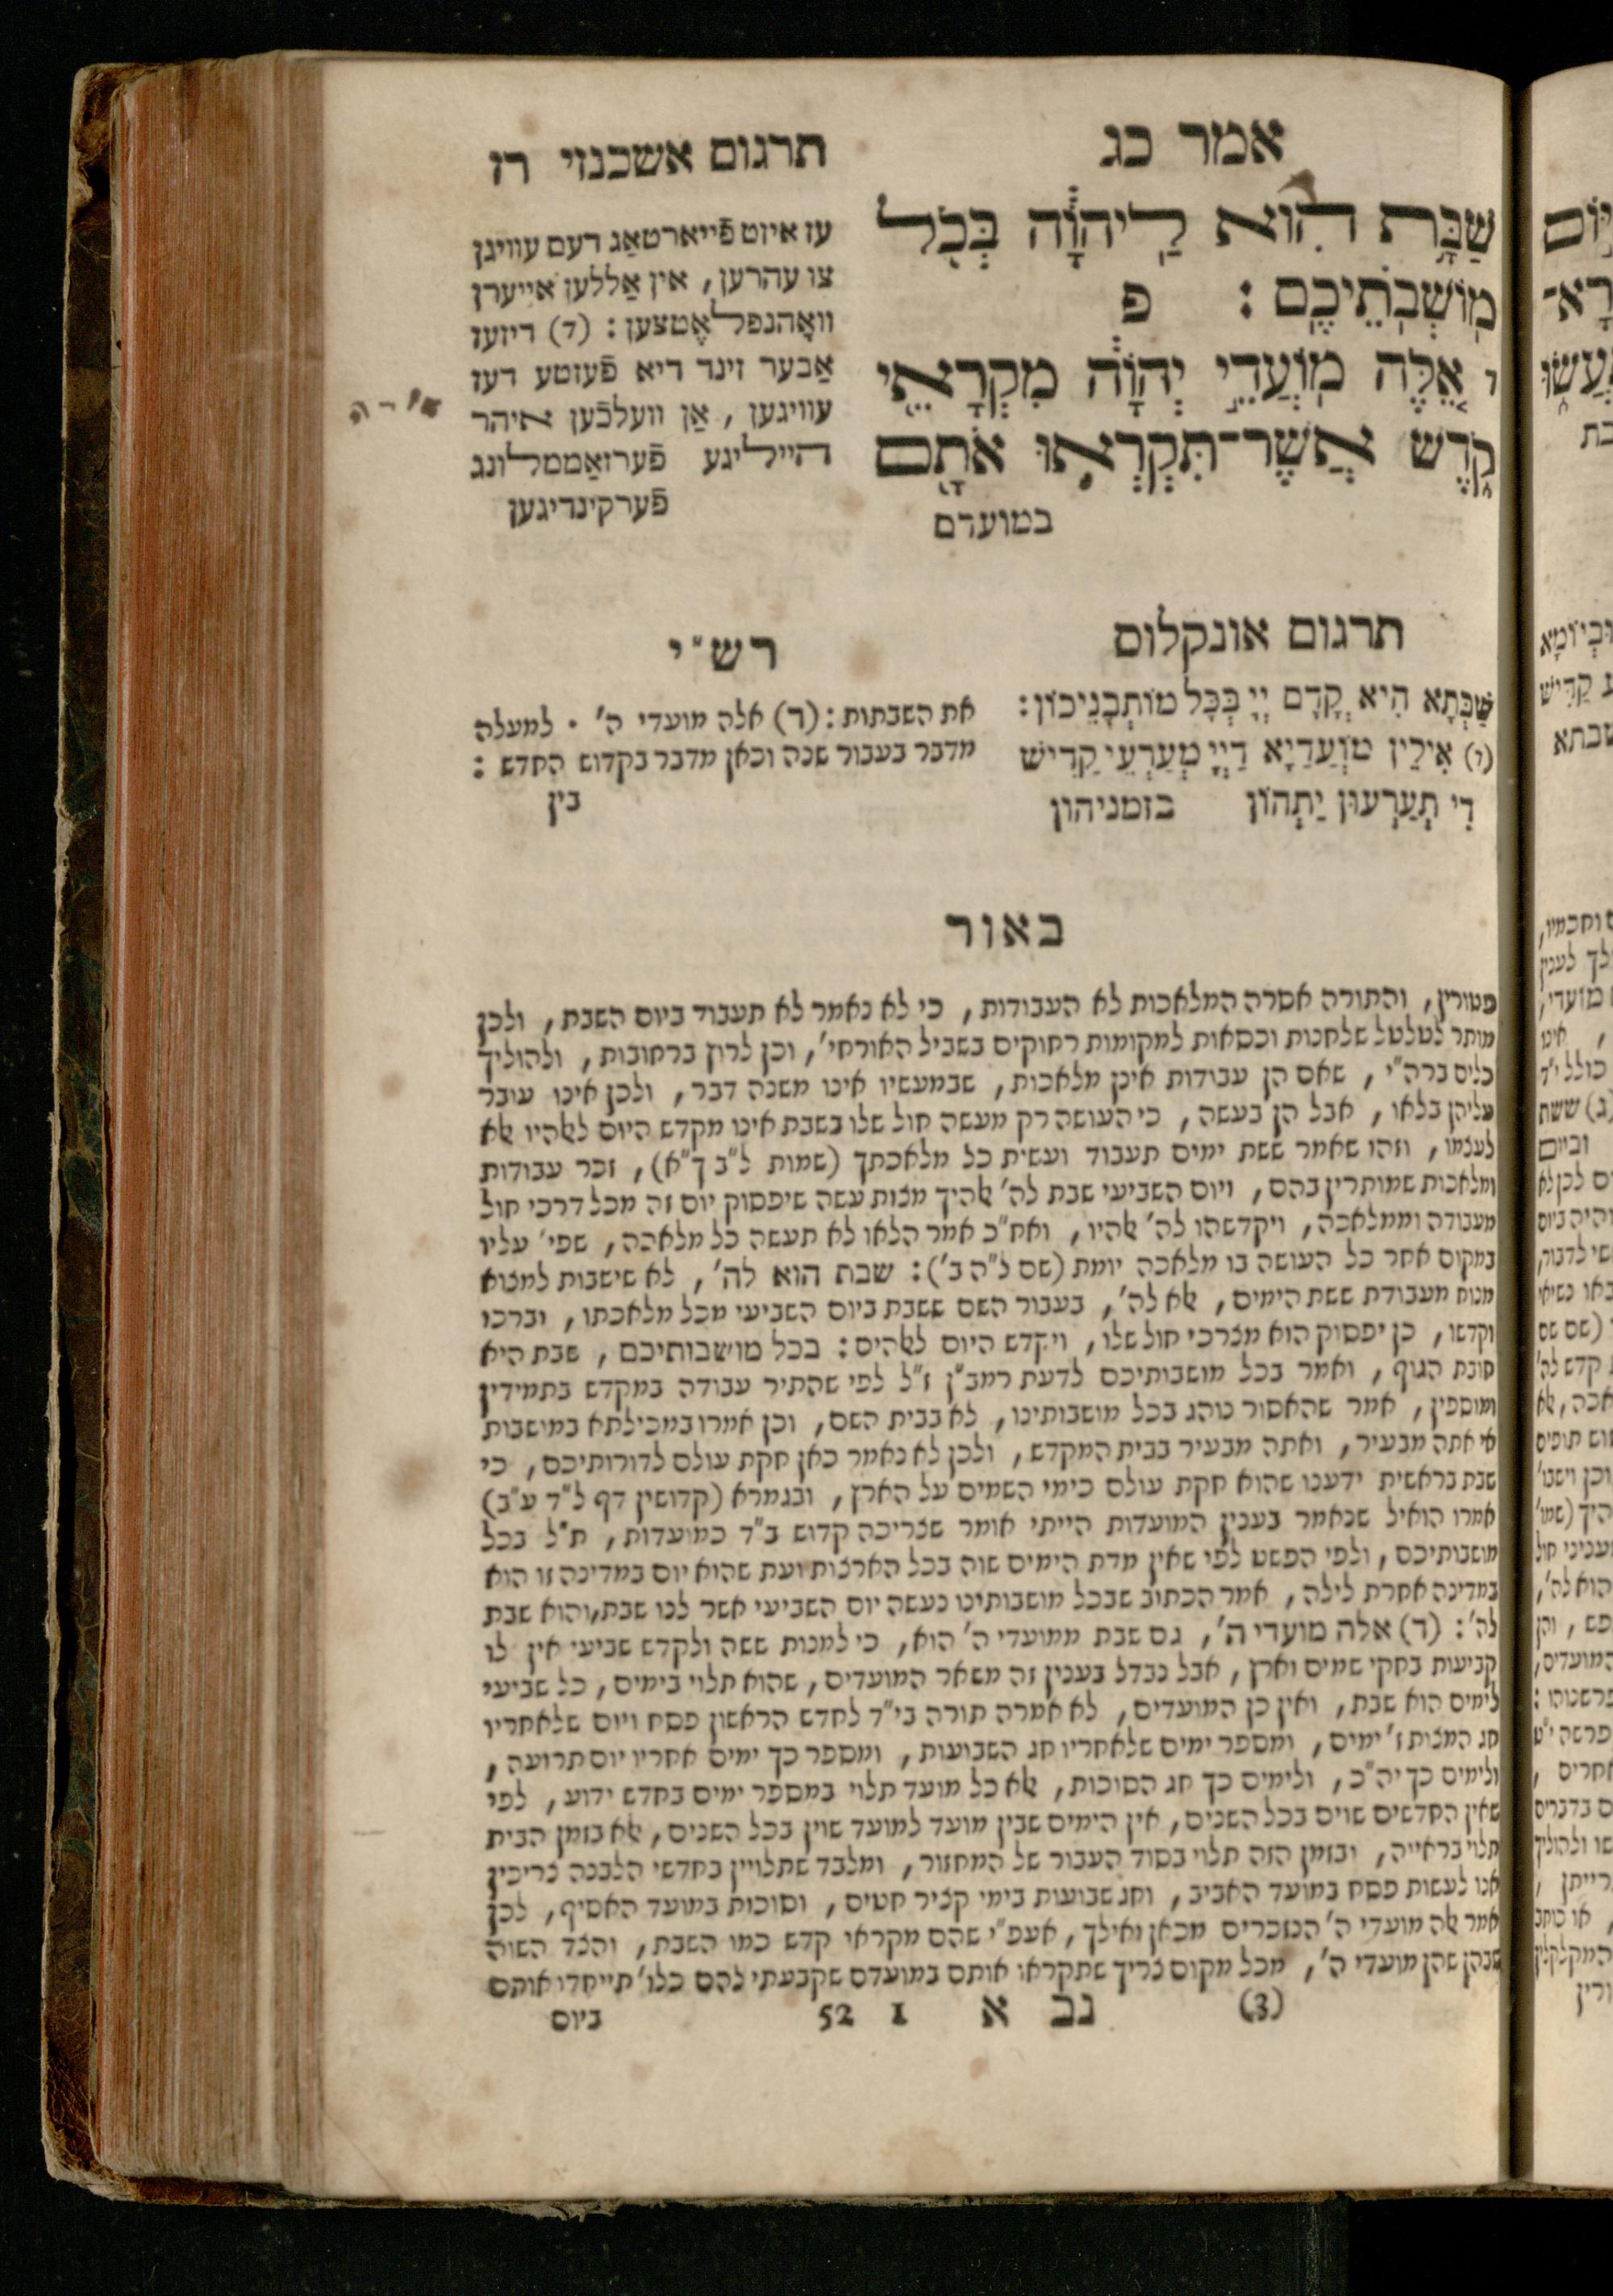 אמר כג
תרגום אשכנזי רז
שַׁבָּ֥ת הִ֛וא לַֽיהוָ֖ה בְּכֹ֖ל
מֽוֹשְׁבֹֽתֵיכֶֽם: פ
ד אֵ֚לֶּה מֽוֹעֲדֵ֣י יְהוָ֔ה מִקְרָאֵ֖י
קֹ֑דֶשׁ אֲשֶׁר־תִּקְרְא֥וּ אֹתָ֖ם
במועדם
עז איזט פֿייארטאַג דעם עוויגן
צו עהרען, אין אַללען אייערן
וואָהנפלאֶטצען: (ד) דיזעז
אַבער זינד דיא פֿעזטע דעז
עוויגען, אַן וועלכֿען איהר
הייליגע פֿערזאַממלונג
פֿערקינדיגען
תרגום אונקלוס
שַׁבְּתָא הִיא קֳדָם יְיָ בְּכָל מוֹתְבָנֵיכוֹן:
(ד) אִילֵין מוֹעֲדַיָא דַיְיָ מְעַרְעֵי קַדִישׁ
דִי תְעַרְעוּן יַתְהוֹן בזמניהון
רש"י
את השבתות: (ד) אלה מועדי ה' · למעלה
מדבר בעבור שנה וכאן מדבר בקדוש החדש:
בין
באור
פטורין, והתורה אסרה המלאכות לא העבודות, כי לא נאמר לא תעבוד ביום השבת, ולכן
מותר לטלטל שלחנות וכסאות למקומות רחוקים בשביל האורחי', וכן לרוץ ברחובות, ולהוליך
כלים ברה"י, שאם הן עבודות אינן מלאכות, שבמעשיו אינו משנה דבר, ולכן אינו עובר
עליהן בלאו, אבל הן בעשה, כי העושה רק מעשה חול שלו בשבת אינו מקדש היום לאלהיו אלא
לעצמו, וזהו שאמר ששת ימים תעבוד ועשית כל מלאכתך (שמות ל"ב ך"א), זכר עבודות
ומלאכות שמותרין בהם, ויום השביעי שבת לה' אלהיך מצות עשה שיפסוק יום זה מכל דרכי חול
מעבודה וממלאכה, ויקדשהו לה' אלהיו, ואח"כ אמר הלאו לא תעשה כל מלאכה, שפי' עליו
במקום אחר כל העושה בו מלאכה יומת (שם ל"ה ב'): שבת הוא לה', לא שישבות למצוא
מנוח מעבודת ששת הימים, אלא לה', בעבור השם ששבת ביום השביעי מכל מלאכתו, וברכו
וקדשו, כן יפסוק הוא מצרכי חול שלו, ויקדש היום לאלהים: בכל מושבותיכם, שבת היא
חובת הגוף, ואמר בכל מושבותיכם לדעת רמב"ן ז"ל לפי שהתיר עבודה במקדש בתמידין
ומוספין, אמר שהאסור נוהג בכל מושבותינו, לא בבית השם, וכן אמרו במכילתא במושבות
אי אתה מבעיר, ואתה מבעיר בבית המקדש, ולכן לא נאמר כאן חקת עולם לדורותיכם, כי
שבת בראשית ידענו שהוא חקת עולם כימי השמים על הארץ, ובגמרא (קדושין דף ל"ד ע"ב)
אמרו הואיל שנאמר בענין המועדות הייתי אומר שצריכה קדוש ב"ד כמועדות, ת"ל בכל
מושבותיכם, ולפי הפשט לפי שאין מדת הימים שוה בכל הארצות ועת שהוא יום במדינה זו הוא
במדינה אחרת לילה, אמר הכתוב שבכל מושבותינו נעשה יום השביעי אשר לנו שבת, והוא שבת
לה': (ד) אלה מועדי ה', גם שבת ממועדי ה' הוא, כי למנות ששה ולקדש שביעי אין לו
קביעות בחקי שמים וארץ, אבל נבדל בענין זה משאר המועדים, שהוא תלוי בימים, כל שביעי
לימים הוא שבת, ואין כן המועדים, לא אמרה תורה בי"ד לחדש הראשון פסח ויום שלאחריו
חג המצות ז' ימים, ומספר ימים שלאחריו חג השבועות, ומספר כך ימים אחריו יום תרועה,
ולימים כך יה"כ, ולימים כך חג הסוכות, אלא כל מועד תלוי במספר ימים בחדש ידוע, לפי
שאין החדשים שוים בכל השנים, אין הימים שבין מועד למועד שוין בכל השנים, אלא בזמן הבית
תלוי בראייה, ובזמן הזה תלוי בסוד העבור של המחזור, ומלבד שתלויין בחדשי הלבנה צריכין
אנו לעשות פסח במועד האביב, וחג שבועות בימי קציר חטים, וסוכות במועד האסיף, לכן
אמר אלה מועדי ה' הנזכרים מכאן ואילך, אעפ"י שהם מקראי קדש כמו השבת, והצד השוה
שבהן שהן מועדי ה', מכל מקום צריך שתקראו אותם במועדם שקבעתי להם כלו' תייחדו אותם
(3) נב א 1 52 ביום